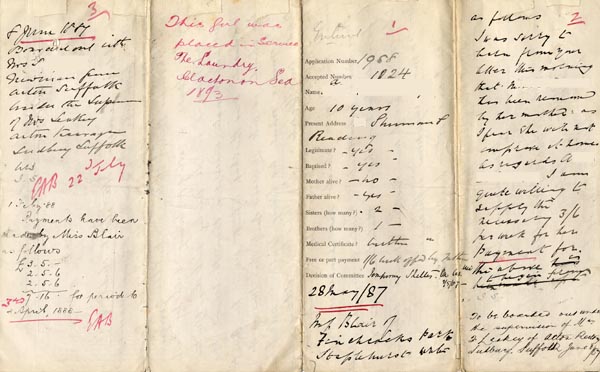 3
8 June 1887
Boarded out with
Mrs F
Newman
Acton Suffolk
under the Supervision
of Mrs Leakey
Acton
Sudbury Suffolk
EAB 22 July
1 July 88
Payments have been
made by Miss Blair
as follows
£3.5.-
2.5.6
2.5.6
7.16.- for period to
2 April, 1888
EAB
This girl was
placed in Service
The Laundry,
Clacton on Sea
1893
1
Entered
Application Number / 1968
Accepted Number / 1024
Name,
Age 10 years
Present Address
Reading
Legitimate? - Yes -
Baptised? - Yes -
Mother alive? - no -
Father alive? - Yes -
Sisters (how many)? 2 -
Brothers (how many)? 1 -
Medical Certificate? written
Free or part payment 1/6 week offd by
Decision of Committee Temporary Shelter
28 May/87
Miss Blair of
Finchcocks Park
Staplehurst writes
2
as follows
I was sorry to
hear from you
after this morning
that M
has been removed
by her mother: as
I fear she will not
improve at home
As regards A
I am
quite willing to
supply the
necessary 3/6
per week for her
Payment for
the above
To be boarded out under
the supervision of Mrs
Leakey of Acton Rectory
Sudbury, Suffolk, June 1/87